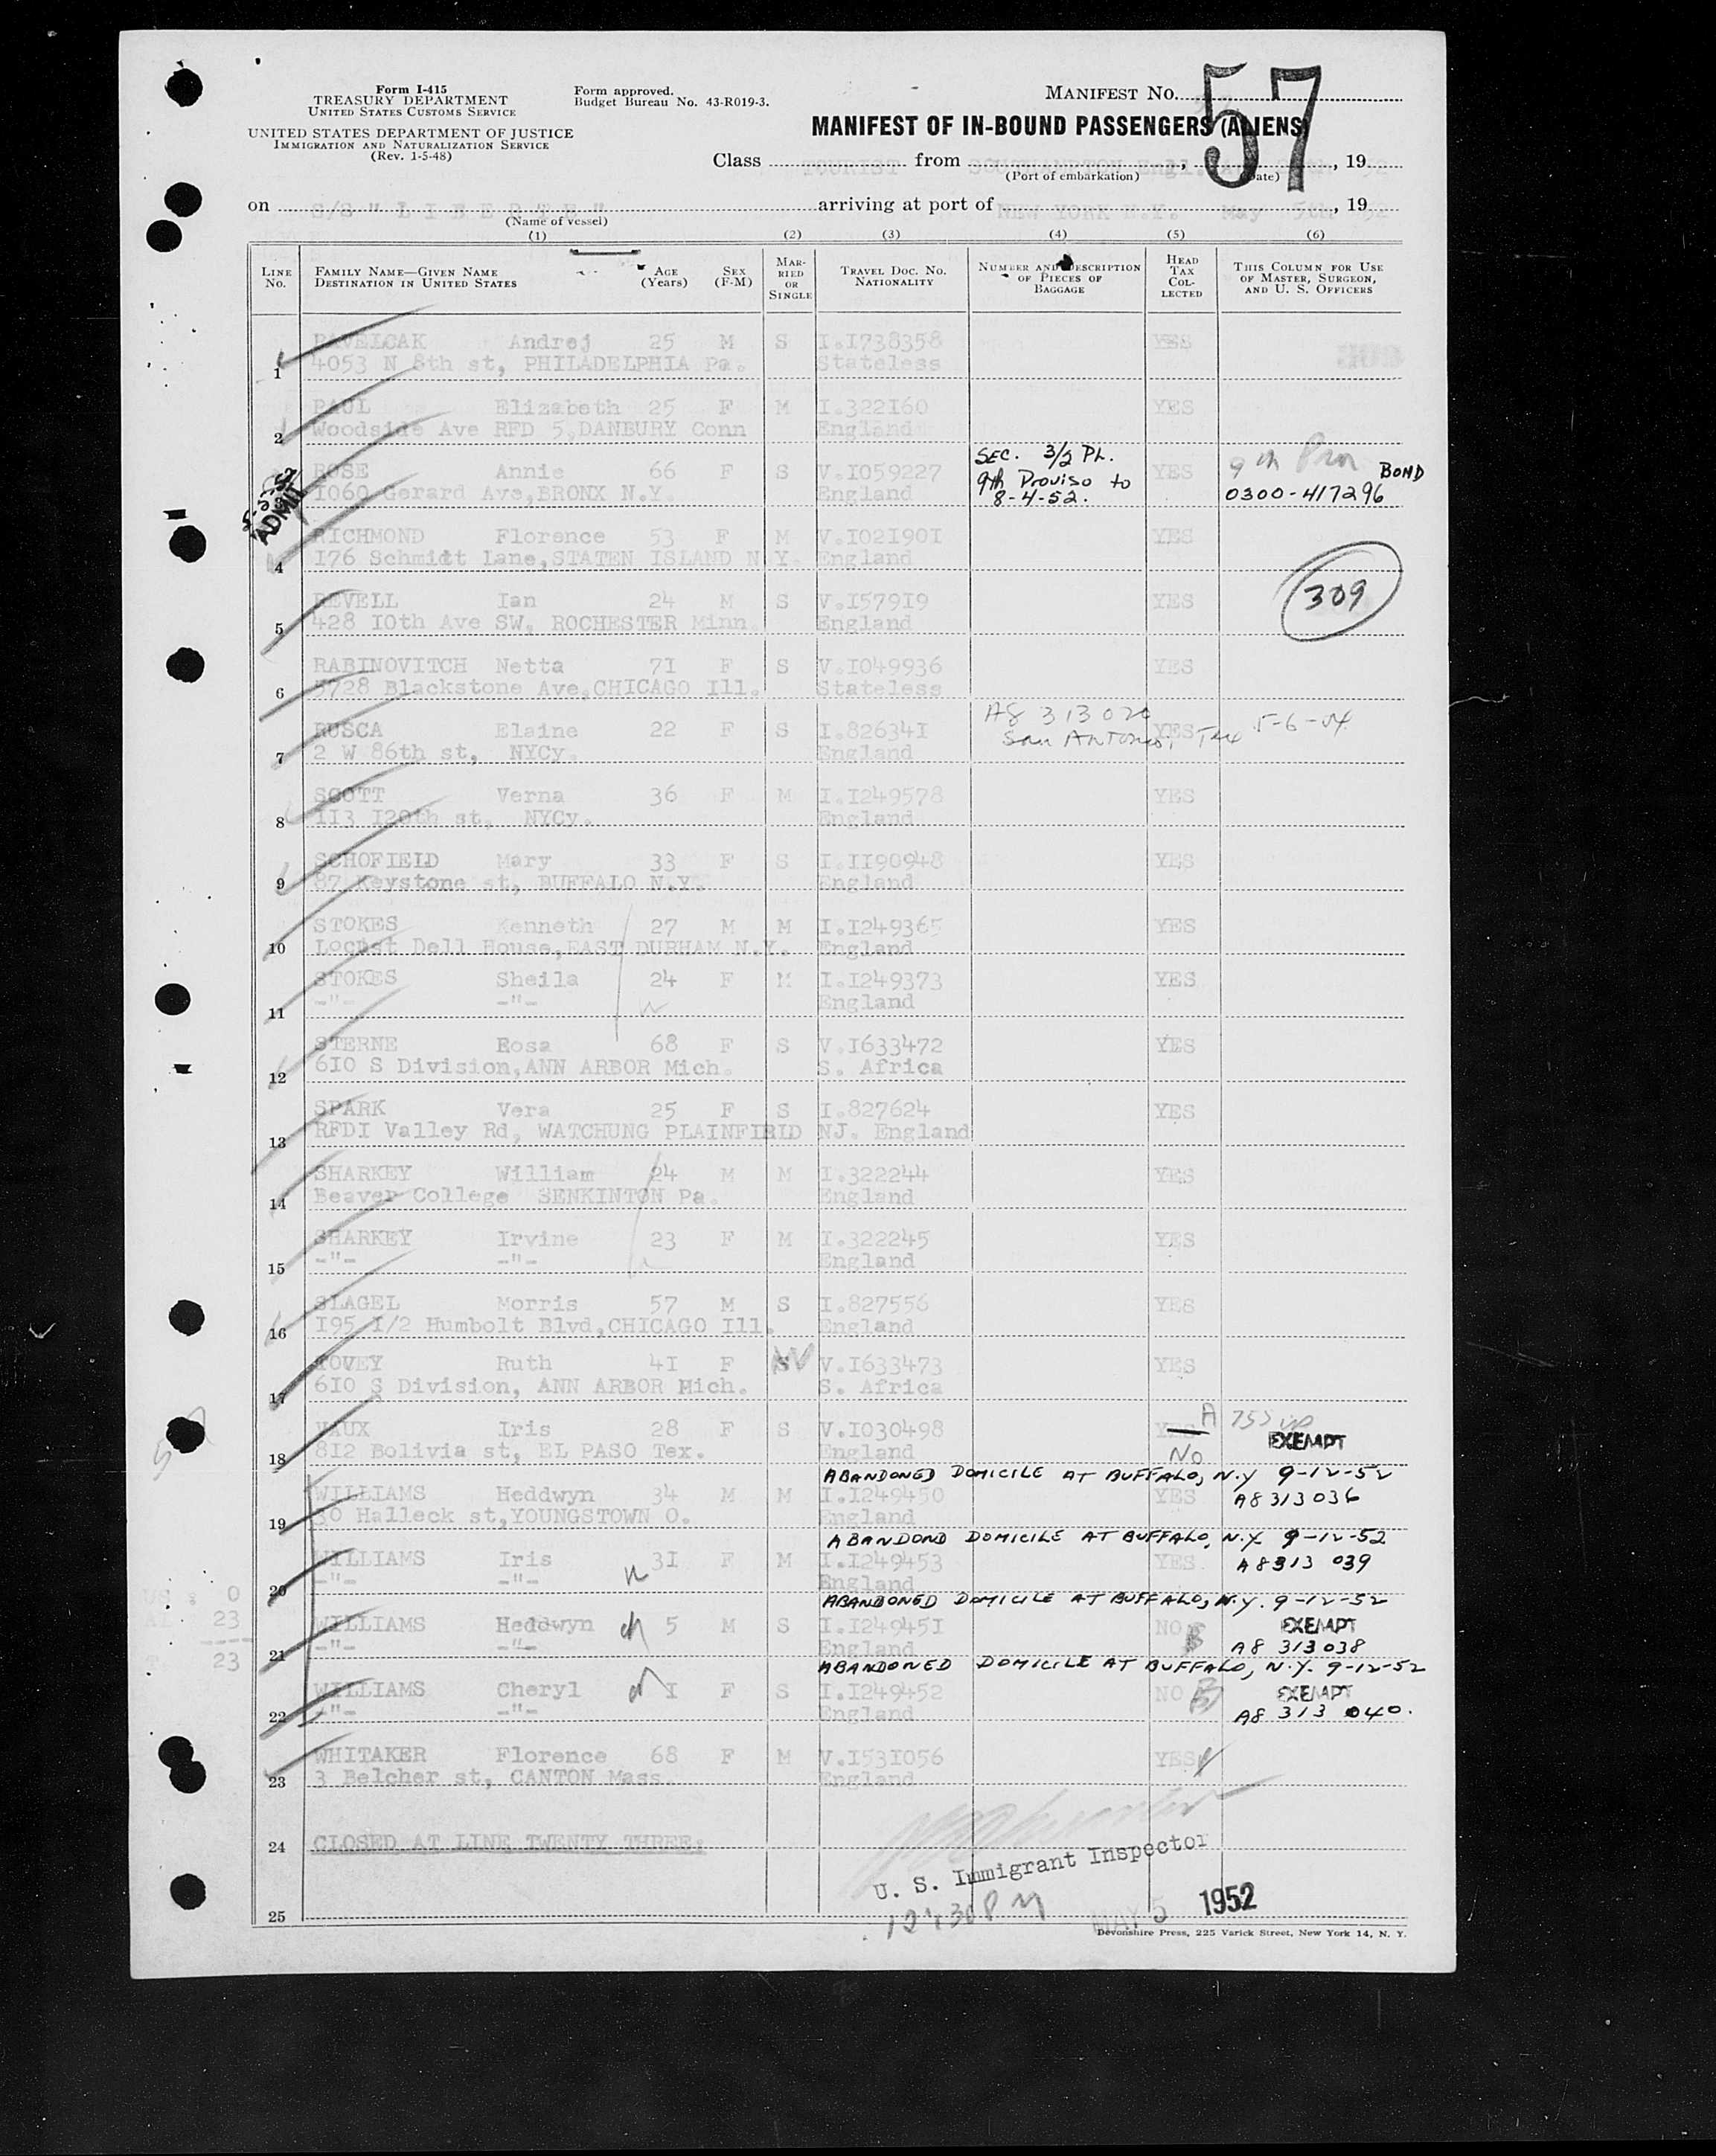 Form I-415
TREASURY DEPARTMENT
UNITED STATES CUSTOMS SERVICE
UNITED STATES DEPARTMENT OF JUSTICE
IMMIGRATION AND NATURALIZATION SERVICE
(Rev. 1-5-48)
Form approved.
Budget Bureau No. 43-R019-3.
MANIFEST NO.
57
MANIFEST OF IN-BOUND PASSENGERS (ALIENS)
Class TOURIST from SOUTHAMPTON Engl. , 19 52
(Port of embarkation) (Date)
on S/S "LIBERTE" arriving at port of NEW YORK N.Y. May 5th , 19 52
(Name of vessel)
(1) (2) (3) (4) (5) (6)
LINE NO. FAMILY NAME—GIVEN NAME DESTINATION IN UNITED STATES AGE (Years) SEX (F-M) MARRIED OR SINGLE TRAVEL DOC. NO. NATIONALITY NUMBER AND DESCRIPTION OF PIECES OF BAGGAGE HEAD TAX COLLECTED THIS COLUMN FOR USE OF MASTER, SURGEON, AND U. S. OFFICERS
PAVELCAK Andrej 25 M S I.I738358 YES
1 4053 N 8th st, PHILADELPHIA Pa. Stateless
PAUL Elizabeth 25 F M I.322I60 YES
2 Woodside Ave RFD 5,DANBURY Conn England
SEC. 3/2 PL.
ROSE Annie 66 F S V.I059227 9th Proviso to YES 9th BOND
I060 Gerard Ave,BRONX N.Y. England 8-4-52. 0300-417296
ADMIT
RICHMOND Florence 53 F M V.I02I90I YES
4 I76 Schmidt Lane,STATEN ISLAND N.Y. England
REVELL Ian 24 M S V.I579I9 YES 309
5 428 I0th Ave SW, ROCHESTER Minn. England
RABINOVITCH Netta 7I F S V.I049936 YES
6 5728 Blackstone Ave,CHICAGO Ill. Stateless
RUSCA Elaine 22 F S I.82634I A8 313 020 YES
7 2 W 86th st, NYCy. England San Antonio, Tex 5-6-54
SCOTT Verna 36 F M I.I249578 YES
8 II3 I20th st, NYCy. England
SCHOFIELD Mary 33 F S I.II90948 YES
9 87 Keystone st, BUFFALO N.Y. England
STOKES Kenneth 27 M M I.I249365 YES
10 Locust Dell House,EAST DURHAM N.Y. England
STOKES Sheila 24 F M I.I249373 YES
11 -"- -"- England
STERNE Rosa 68 F S V.I633472 YES
12 6I0 S Division,ANN ARBOR Mich. S. Africa
SPARK Vera 25 F S I.827624 YES
13 RFDI Valley Rd, WATCHUNG PLAINFIELD NJ. England
SHARKEY William 24 M M I.322244 YES
14 Beaver College SENKINTON Pa. England
SHARKEY Irvine 23 F M I.322245 YES
15 -"- -"- England
SLAGEL Morris 57 M S I.827556 YES
16 I95 I/2 Humbolt Blvd,CHICAGO Ill. England
TOVEY Ruth 4I F W V.I633473 YES
17 6I0 S Division, ANN ARBOR Mich. S. Africa
VAUX Iris 28 F S V.I030498 YES
18 8I2 Bolivia st, EL PASO Tex. England No EXEMPT
ABANDONED DOMICILE AT BUFFALO, N.Y 9-12-52
WILLIAMS Heddwyn 34 M M I.I249450 YES A8 313 036
19 30 Halleck st,YOUNGSTOWN O. England
ABANDOND DOMICILE AT BUFFALO, N.Y. 9-12-52
WILLIAMS Iris 3I F M I.I249453 YES A8313 039
20 -"- -"- England
ABANDONED DOMICILE AT BUFFALO, N.Y. 9-12-52
WILLIAMS Heddwyn 5 M S I.I24945I NO EXEMPT
21 -"- -"- England A8 313 038
ABANDONED DOMICILE AT BUFFALO, N.Y. 9-12-52
WILLIAMS Cheryl I F S I.I249452 NO EXEMPT
22 -"- -"- England A8 313 040.
0
23
23
WHITAKER Florence 68 F M V.I53I056 YES
23 3 Belcher st, CANTON Mass. England
24 CLOSED AT LINE TWENTY THREE.
U. S. Immigrant Inspector
12:30 PM MAY 5 1952
25
Devonshire Press, 225 Varick Street, New York 14, N. Y.